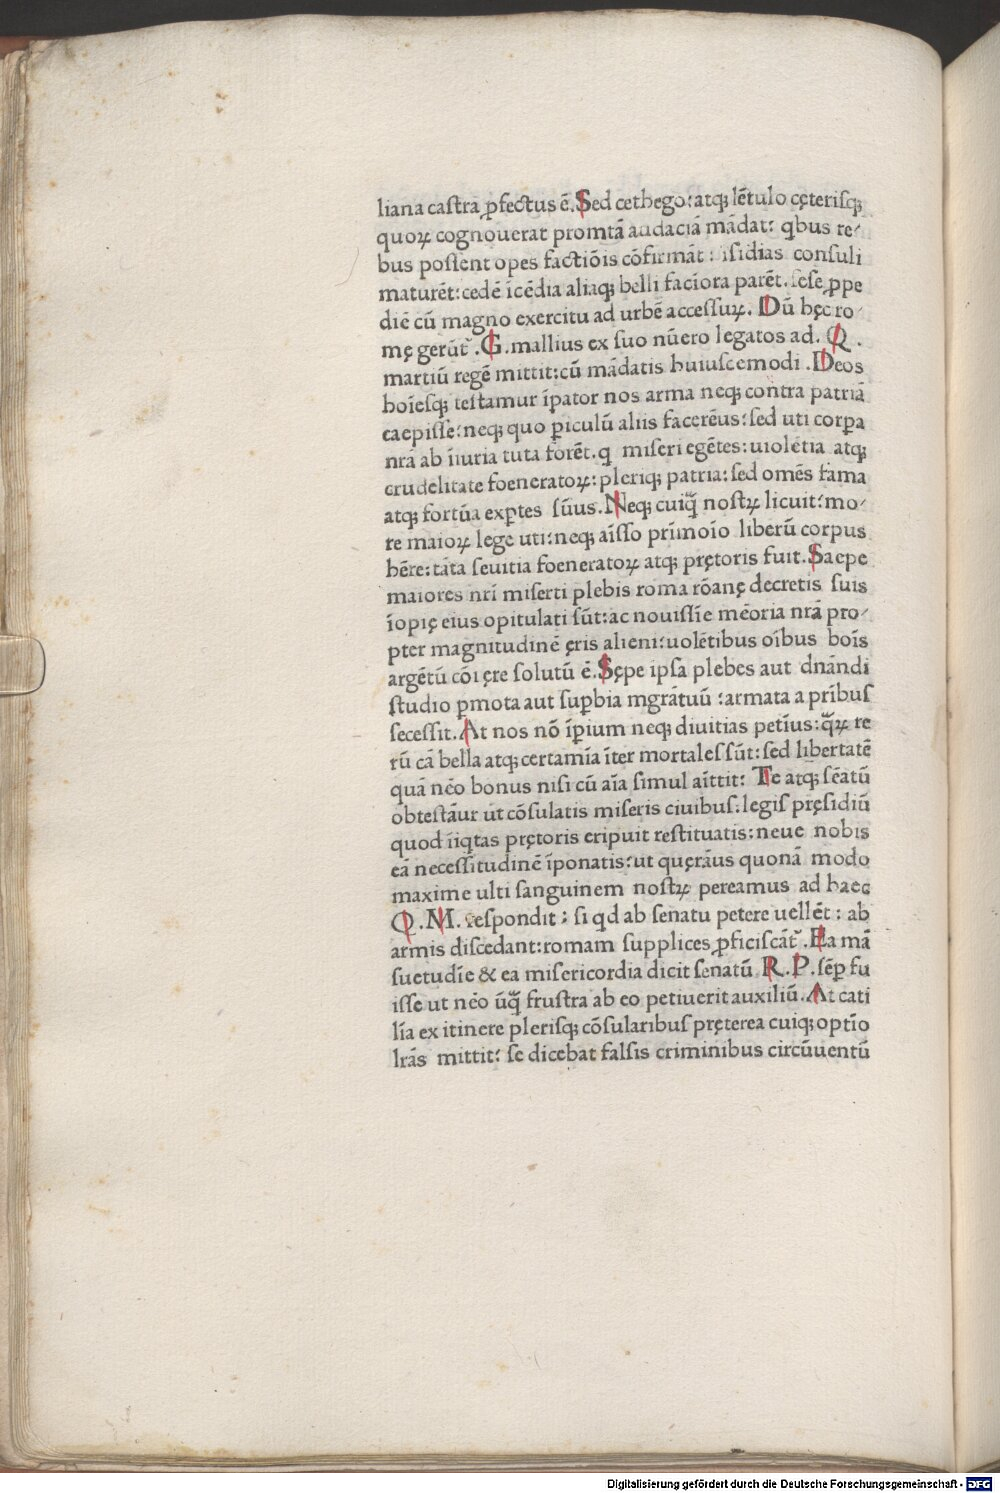 liana castra ꝓfectus ē. Sed cethego: atqꝫ lētulo cęterisqꝫ
quoꝝ cognouerat promtā audaciā mādat: qbus re-
bus possent opes factiōis cōfirmāt: isidias consuli
maturēt: cedē īcēdia aliaqꝫ belli faciora parēt. sese ꝓpe
diē cū magno exercitu ad urbē accessuꝝ. Dū hęc ro-
mę gerūt᷑. G. mallius ex suo nūero legatos ad. Q.
martiū regē mittit: cū mādatis huiuscemodi. Deos
hoīesqꝫ testamur īpator nos arma neqꝫ contra patriā
caepisse: neqꝫ quo ꝑiculū aliis facerēus: sed uti corꝑa
nrā ab īiuria tuta forēt. q miseri egētes: uiolētia atqꝫ
crudelitate foeneratoꝝ: pleriqꝫ patria: sed omēs fama
atqꝫ fortūa exꝑtes sūus. Neqꝫ cuiq̄ nostꝝ licuit: mo-
re maioꝝ lege uti: neqꝫ aīsso prīmoīo liberū corpus
hēre: tāta seuitia foeneratoꝝ atqꝫ prętoris fuit. Saepe
maiores nrī miserti plebis roma rōanę decretis suis
īopię eius opitulati sūt: ac nouissīe mēoria nrā pro-
pter magnitudinē ęris alieni: uolētibus oībus boīs
argētū cōi ęre solutū ē. Sępe ipsa plebes aut dnāndi
studio ꝑmota aut suꝑbia mgrātuū: armata a prībus
secessit. At nos nō īꝑium neqꝫ diuitias petīus: q̄ꝝ re
rū cā bella atqꝫ certamīa īter mortales sūt: sed libertatē
quā nēo bonus nisi cū aīa simul aīttit: Te atqꝫ sēatū
obtestāur ut cōsulatis miseris ciuibus: legis pręsidiū
quod īiqtas prętoris eripuit restituatis: neue nobis
eā necessitudinē īponatis: ut quęrāus quonā modo
maxime ulti sanguinem nostꝝ pereamus ad haec
Q. M. respondit: si qd ab senatu petere uellēt: ab
armis discedant: romam supplices ꝓficiscāt᷑. Ea mā
suetudīe & ea misericordia dicit senatū R. P. sēꝑ fu
isse ut nēo ūq̄ frustra ab eo petiuerit auxiliū. At cati
līa ex itinere plerisqꝫ cōsularibus pręterea cuiqꝫ optīo
lrās mittit: se dicebat falsis criminibus circūuentū
Digitalisierung gefördert durch die Deutsche Forschungsgemeinschaft - DFG